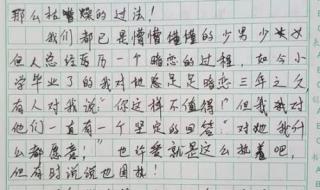 那么枯燥的过法！
我们都已是懵懵懂懂的少男少女
但人总经历一个暗恋的过程，如今小
学毕业了的我对她总是足暗恋三年之久
有人对我说"你这样不值得！"但我对
他们一直有一个坚定的回答"对她我什
么都愿意！"也许爱就是这么执着吧，
但有时说说也困扰！